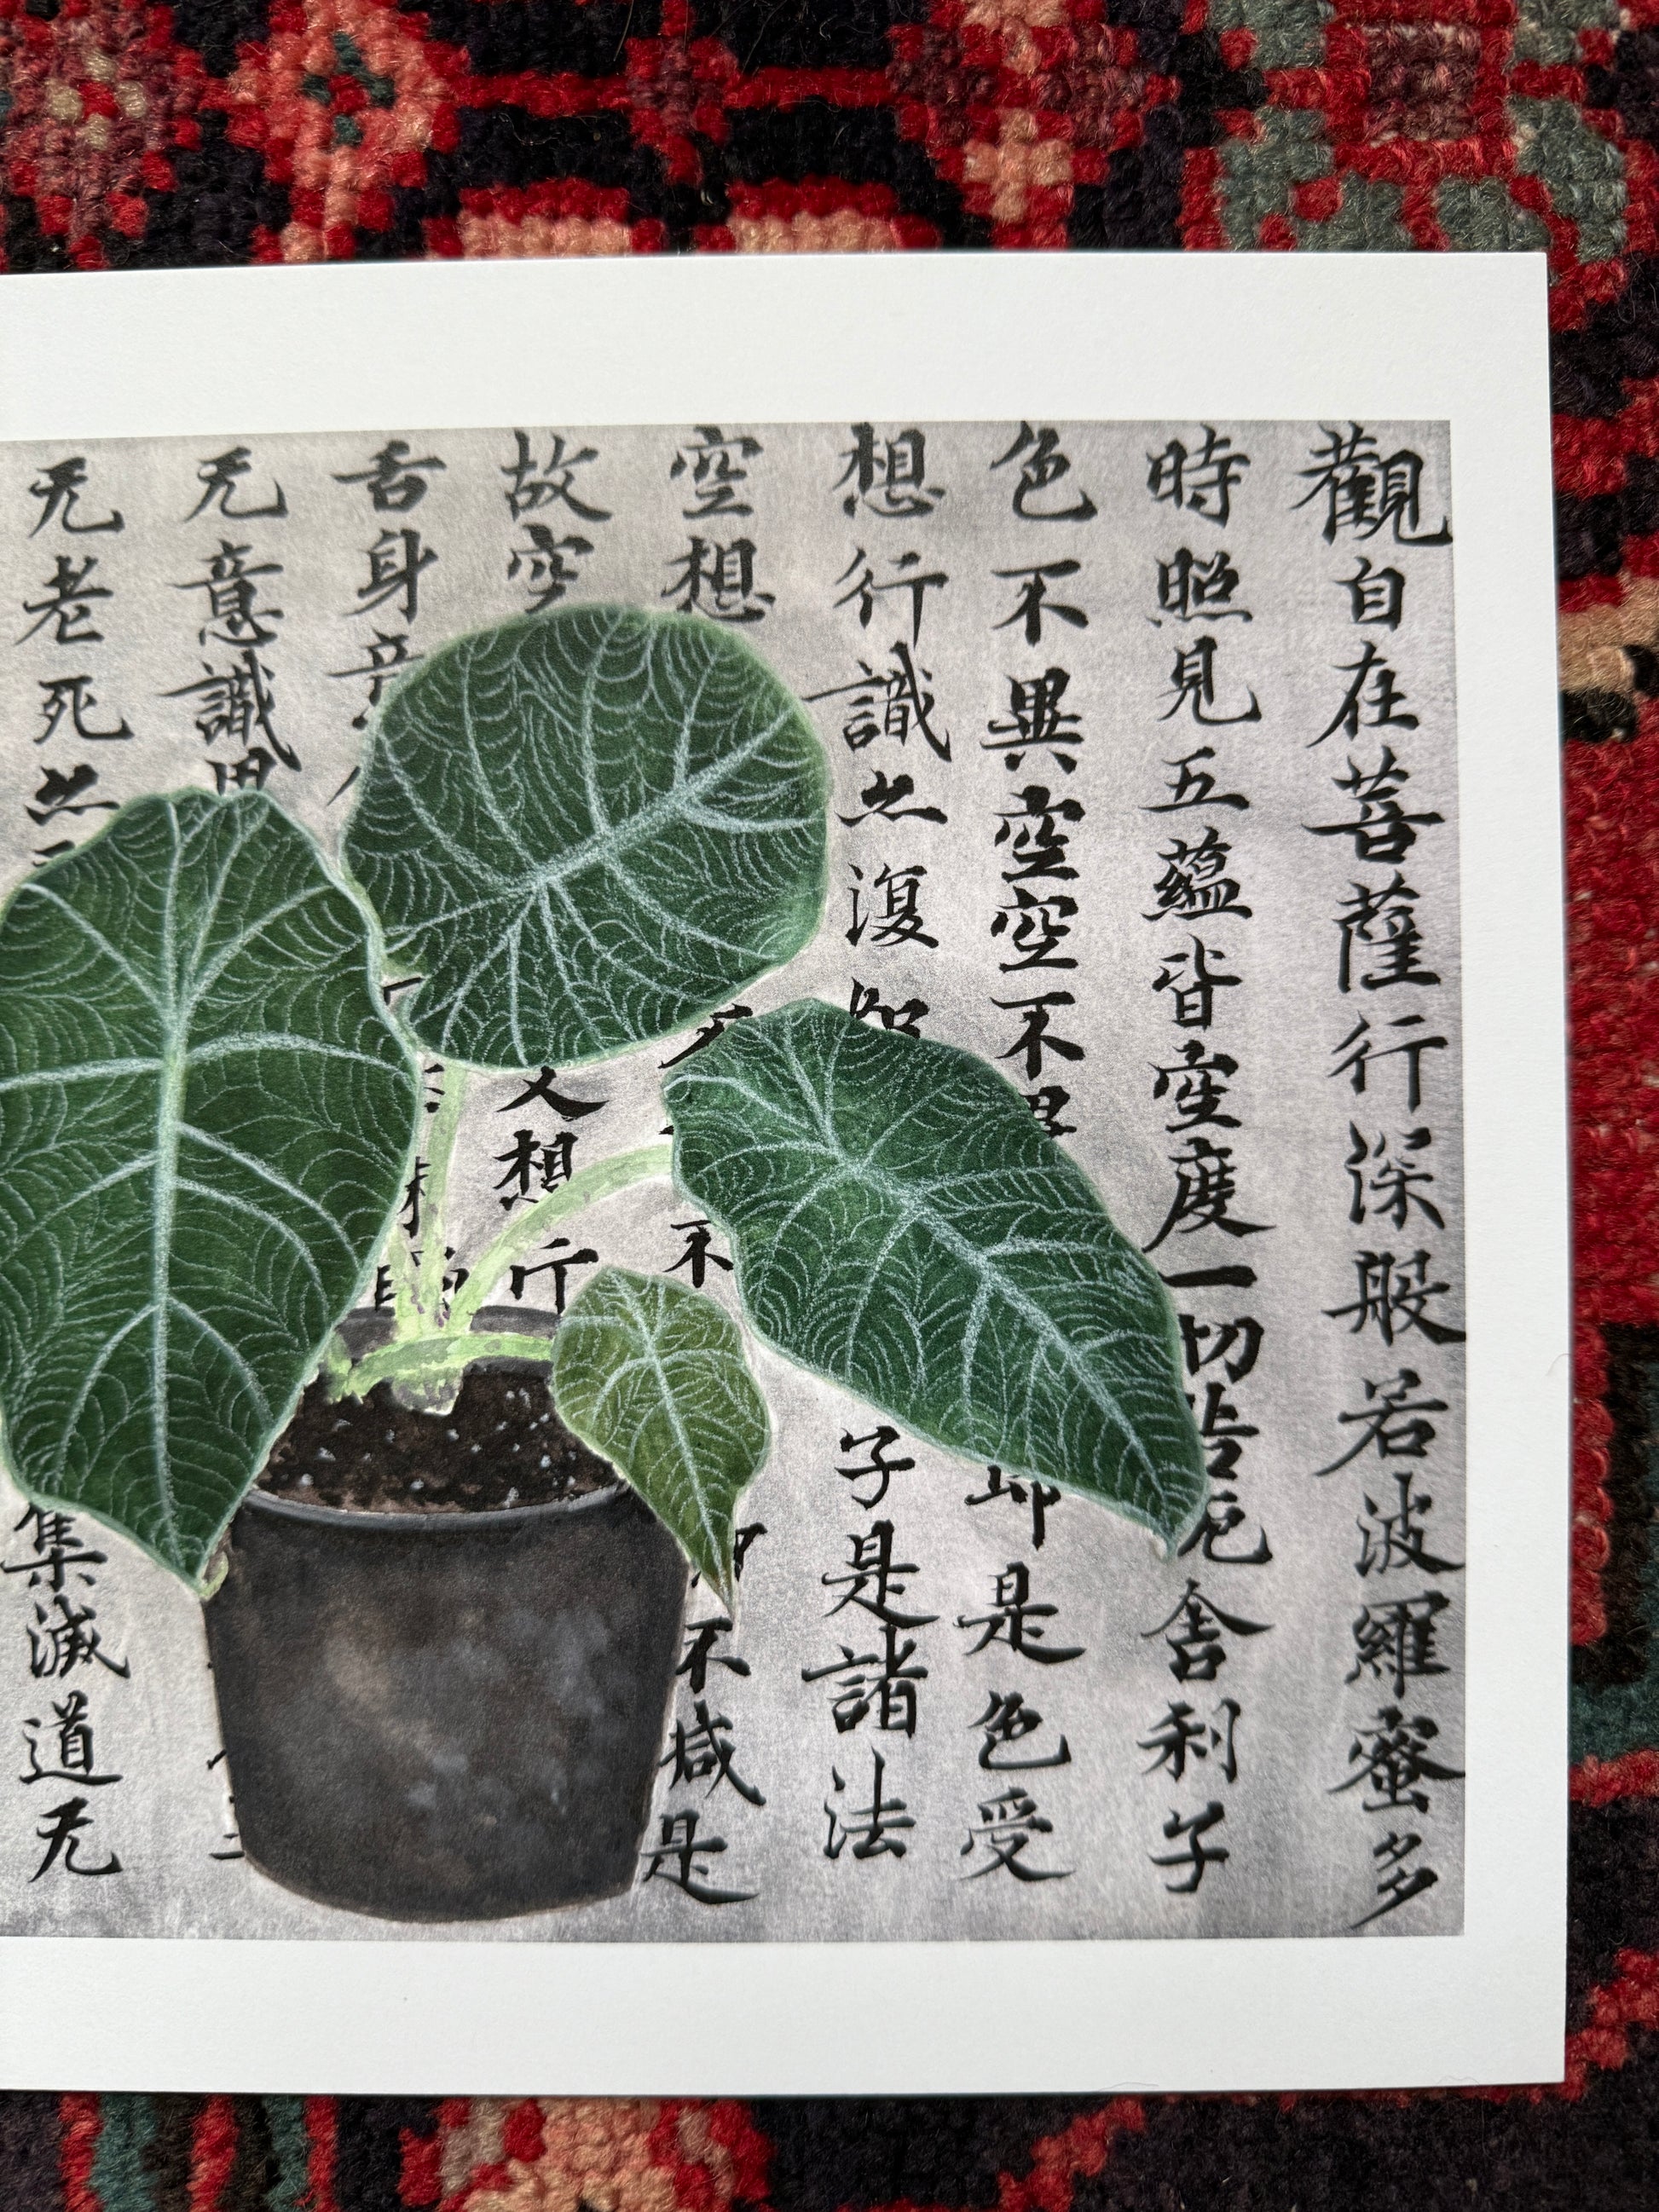 觀自在菩薩行深般若波羅蜜多
時照見五蘊皆空度一切苦厄舍利子
色不異空空不異即是色受
想行識亦復如子是諸法
空想不不減是
故空想行
舌身意
无意識界
无老死亦集滅道无